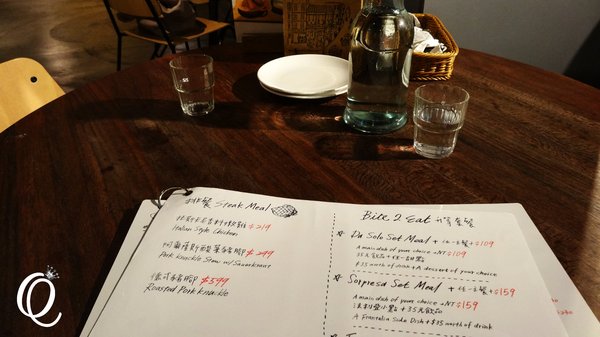 排餐 Steak Meal
Italian Style Chicken $219
$299
Pork Knuckle Stew w/ Sauerkraut
豬腳 $599
Roasted Pork Knuckle
Bite 2 Eat 套餐
Da Solo Set Meal + 任一主餐+$109
A main dish of your choice +NT$109
35元飲品+任一甜點
$35 worth of drink + A dessert of your choice
Sorpresa Set Meal + 任一主餐+$159
A main dish of your choice +NT$159
小點+35元飲品
A Frantelia Side Dish + $35 worth of drink